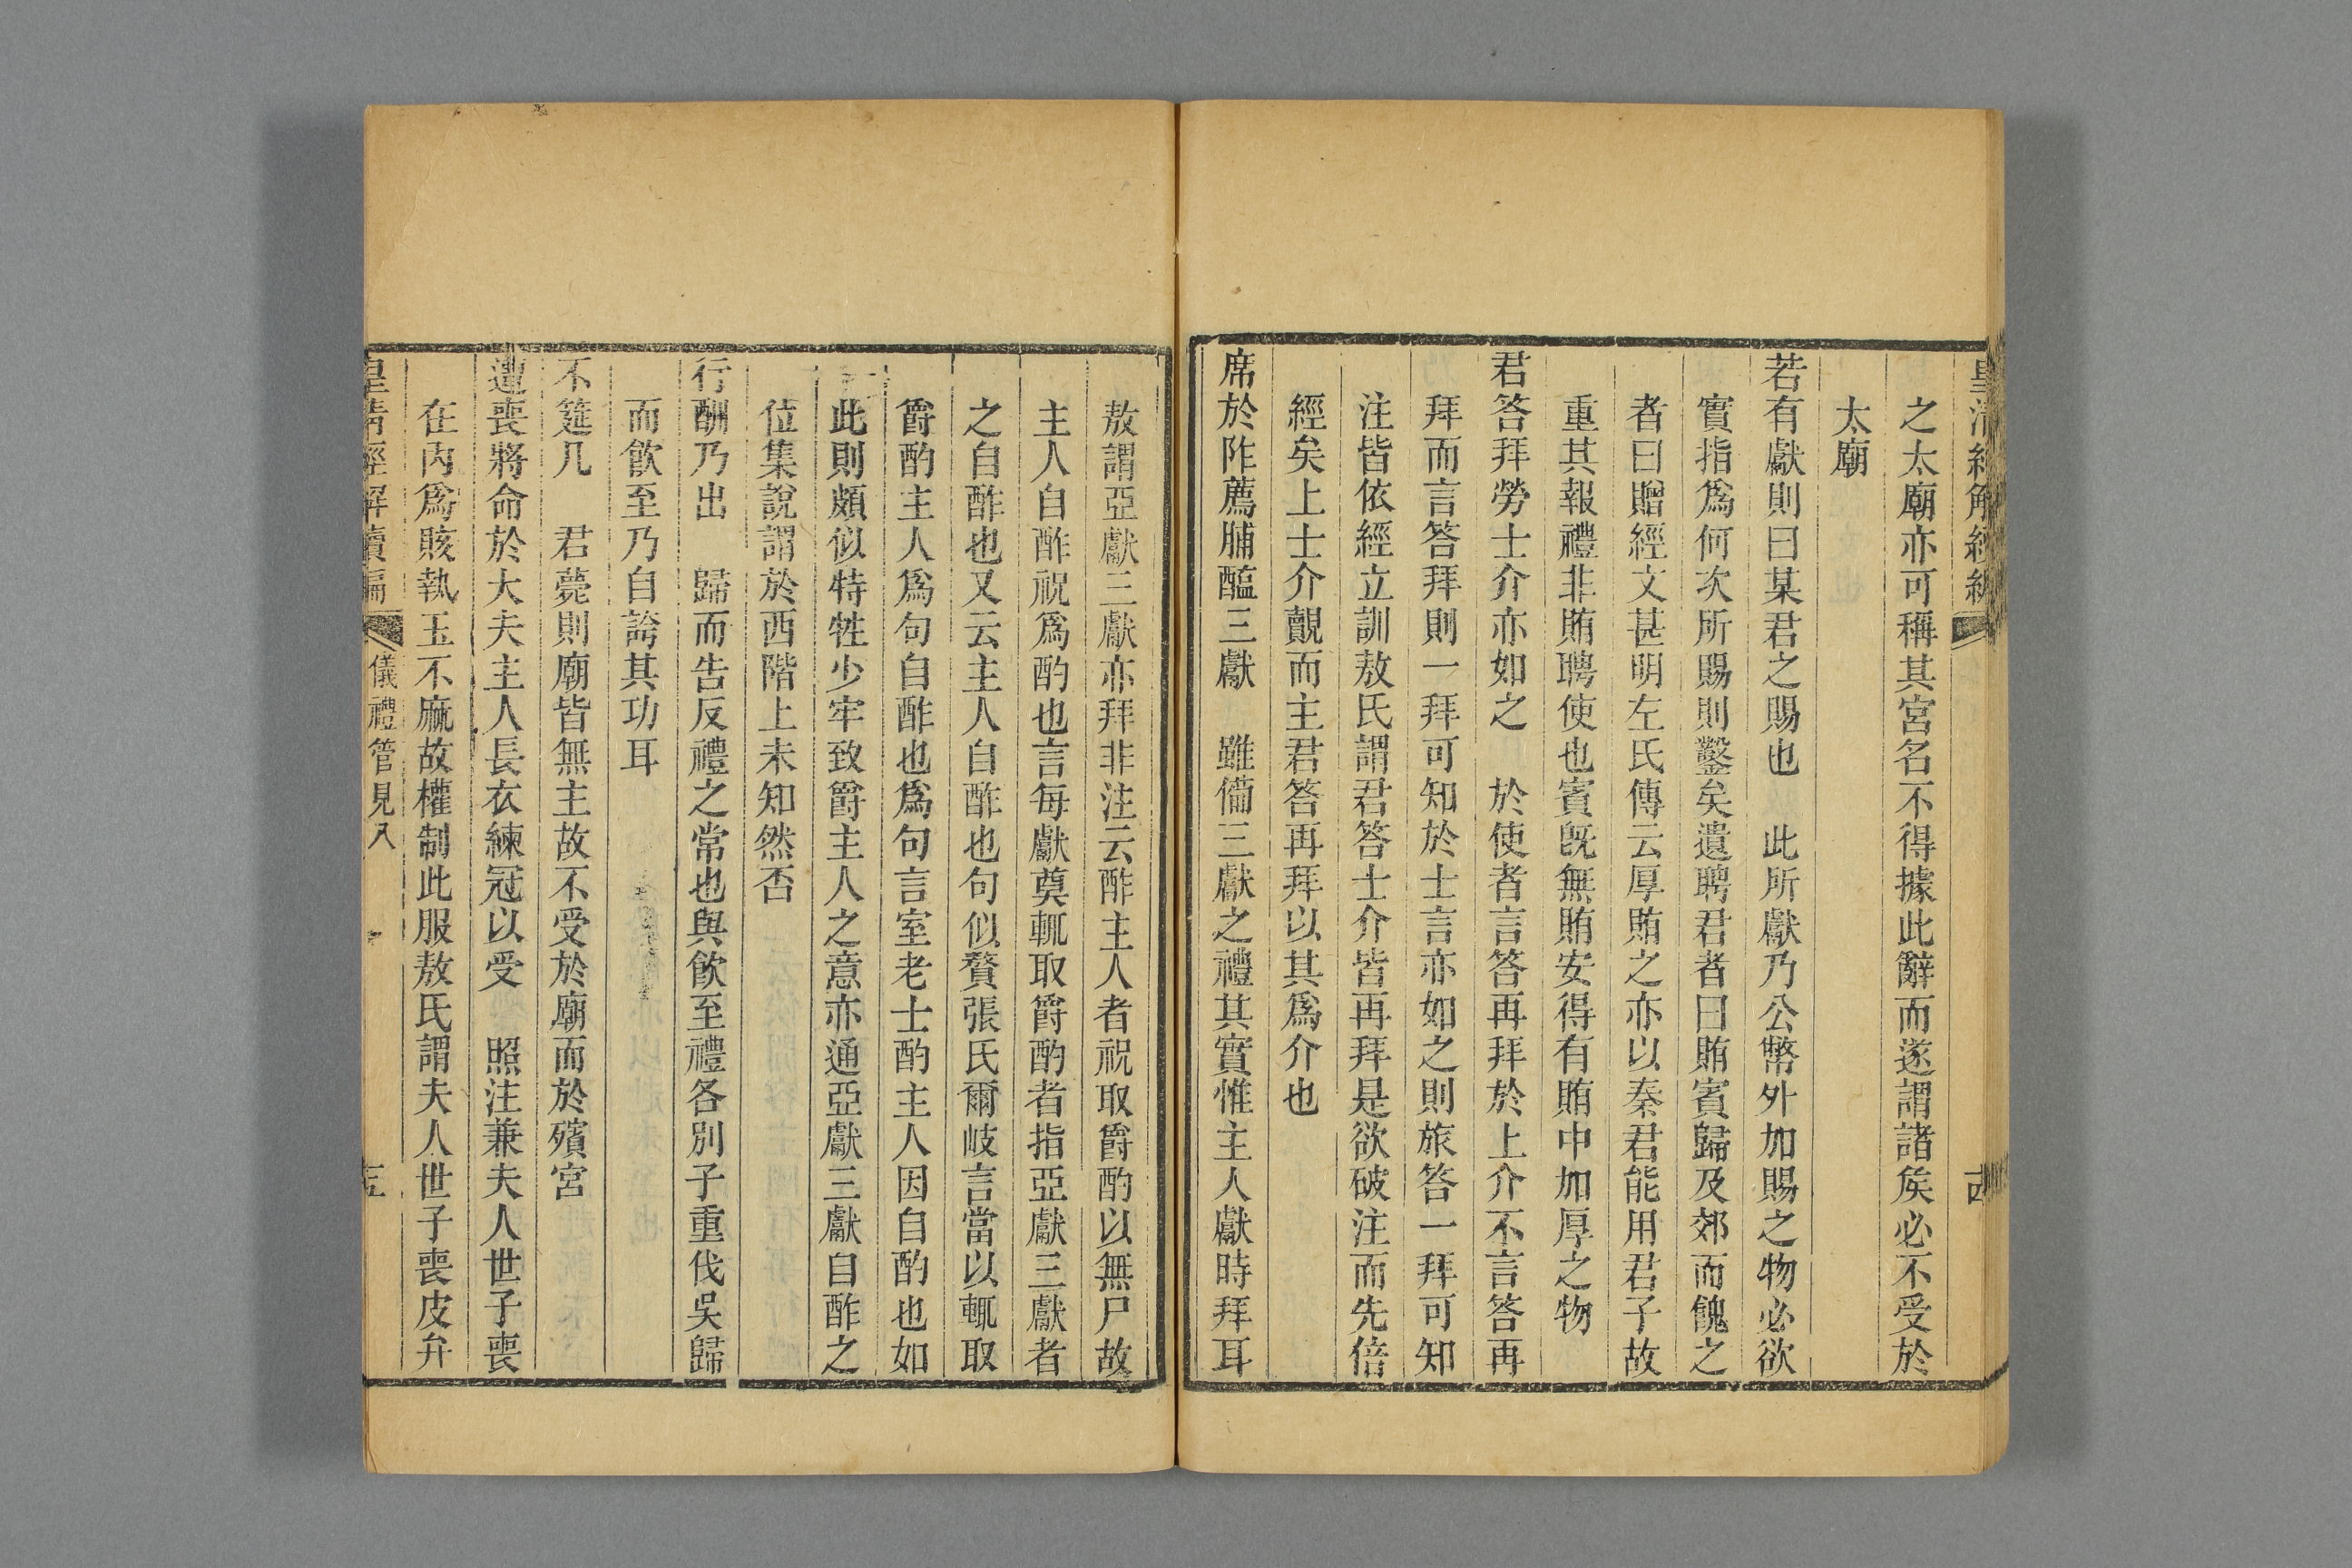 之太廟亦可稱其宮名不得據此辭而遂謂諸矦必不受於
太廟
若有獻則曰某君之賜也　此所獻乃公幣外加賜之物必欲
實指爲何次所賜則鑿矣遺聘君者曰賄賓歸及郊而餽之
者曰贈經文甚明左氏傳云厚賄之亦以秦君能用君子故
重其報禮非賄聘使也賓旣無賄安得有賄中加厚之物
君答拜勞士介亦如之　於使者言答再拜於上介不言答再
拜而言答拜則一拜可知於士言亦如之則旅答一拜可知
注皆依經立訓敖氏謂君答士介皆再拜是欲破注而先倍
經矣上士介覿而主君答再拜以其爲介也
席於阼薦脯醢三獻　雖僃三獻之禮其實惟主人獻時拜耳
敖謂亞獻三獻亦拜非注云酢主人者祝取爵酌以無尸故
主人自酢祝爲酌也言每獻奠輒取爵酌者指亞獻三獻者
之自酢也又云主人自酢也句似贅張氏爾岐言當以輒取
爵酌主人爲句自酢也爲句言室老士酌主人因自酌也如
此則頗似特牲少牢致爵主人之意亦通亞獻三獻自酢之
位集說謂於西階上未知然否
行酬乃出　歸而告反禮之常也與飮至禮各別子重伐吳歸
而飮至乃自誇其功耳
不筵几　君薨則廟皆無主故不受於廟而於殯宮
遭喪將命於大夫主人長衣練冠以受　照注兼夫人世子喪
在內爲賅執玉不麻故權制此服敖氏謂夫人世子喪皮弁
皇淸經解續編
儀禮管見八